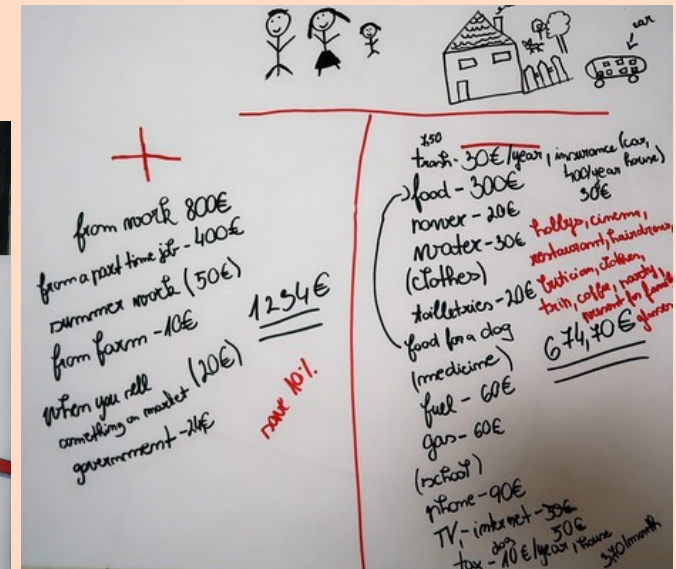 car
from work 800€
from a part time job - 400€
summer work (50€)
from farm - 10€
when you sell (20€)
something on market
government - 24€
1234€
save 10%
7,50
trash - 30€/year, insurance (car,
400/year house)
30€
food - 300€
power - 20€
water - 30€
(clothes)
toilletries - 20€
food for a dog
(medicine)
fuel - 60€
gas - 60€
(school)
phone - 90€
TV, - internet -
50€
dog
tax - 10€/year, house
hobbys, cinema,
restaurant, hairdress,
clothes,
coffee, party,
present for
glasses
674,70€